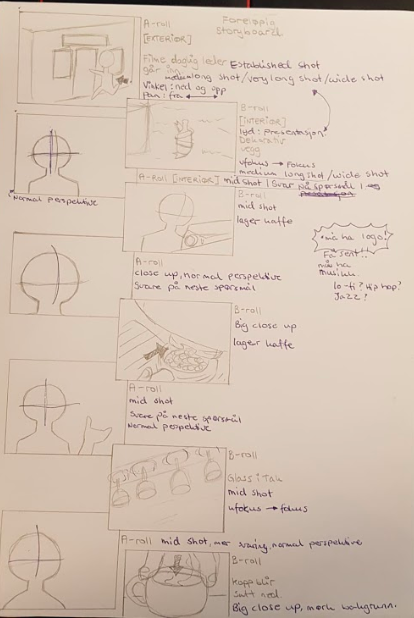 A-roll
[EXTERIOR]
Storyboard
Filme daglig leder Established shot
går inn
medium long shot/very long shot/wide shot
Vinkel: ned og opp
Pan: fra
B-roll
[INTERIOR]
lyd: presentasjon
Dekorativ
vegg
ufokus → fokus
medium long shot/wide shot
Normal perspektive
A-Roll [INTERIOR] mid shot | Svar på spørsmål 1
B-roll
mid shot
lager kaffe
må ha logo!
Få sent!!
må ha
musikk.
lo-fi? Hip hop?
Jazz?
A-roll
close up, normal perspektive
Svare på neste spørsmål
B-roll
Big close up
lager kaffe
A-roll
mid shot
Svare på neste spørsmål
Normal perspektive
B-roll
Glass i tak
mid shot
ufokus → fokus
A-roll mid shot, mer svaring, normal perspektive
B-roll
Kopp blir
satt ned.
Big close up, mørk bakgrunn.